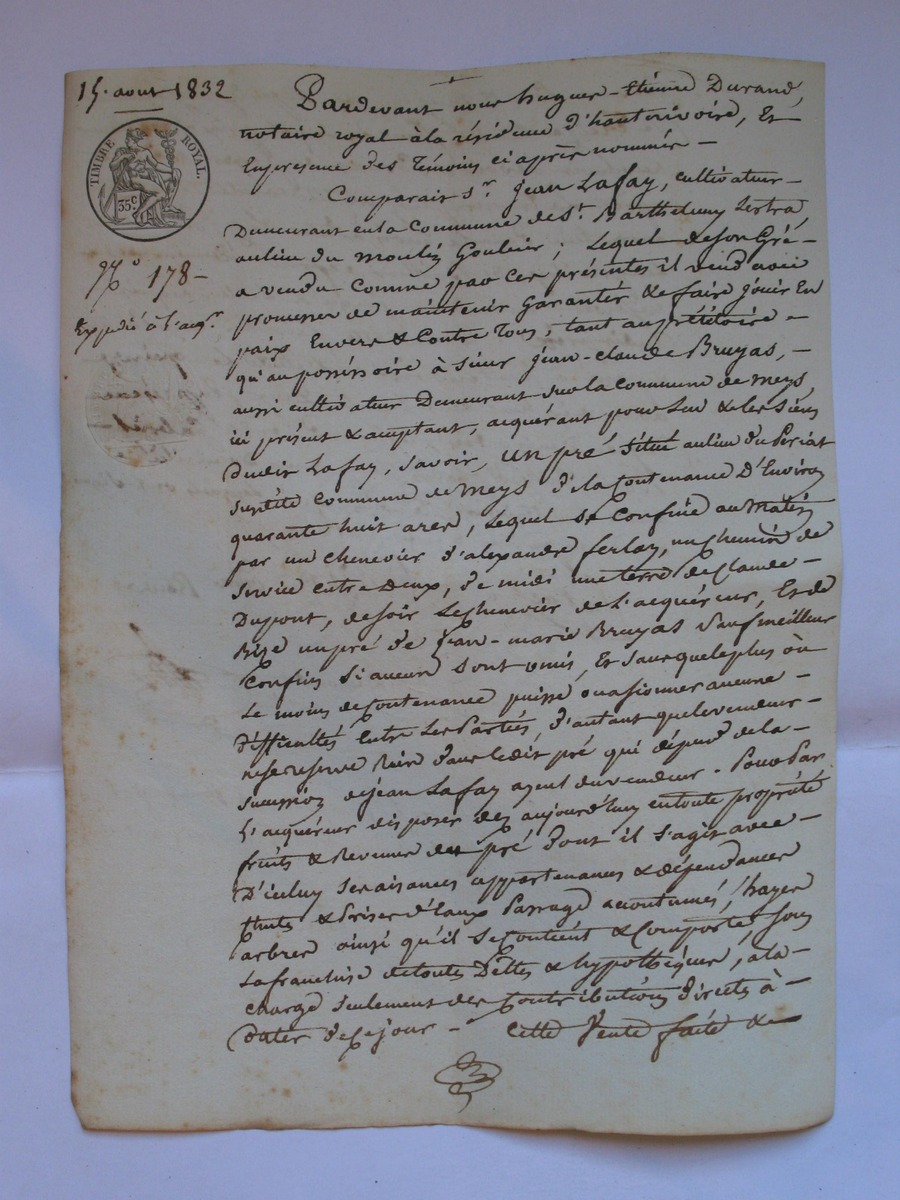 15. aout 1832
TIMBRE ROYAL.
35c
No 178 -
Expédié à l'acqr.
Pardevant nous hugues-Etienne Durand,
notaire royal à la résidence d'hauterivoire, Et
Enpresence des Témoins ci après nommés -
Comparait Sr. Jean Lafay, cultivateur -
Demeurant en la Commune de St. Barthelemy Lestra
au lieu du Moulin Goulein ; Lequel de son Gré -
a vendu Comme par ces présentes il vend avec
promesse de maintenir Garantir & de faire jouir En
paix Envers & Contre Tous, tant au pétitoire -
qu'au possessoire à Sieur Jean-claude Bruyas, -
aussi cultivateur Demeurant sur la Commune de Meys
ici présent & acceptant, acquérant pour Lui & les Siens
dudit Lafay, Savoir, un pré situé au lieu du Periat
susdite Commune de Meys de la Contenance D'Environ
quarante huit ares, Lequel Se Confine au Matin
par un chenevier d'alexandre ferlay, un chemin de
Service entre deux, de midi une terre de Claude -
Dupont, de soir Le chenevier de L'acquéreur, Et de
Bise un pré de Jean-marie Bruyas Sauf meilleurs
Confins Si aucuns Sont omis, Et Sans que le plus ou
Le moins de Contenance puisse occasionner aucune -
difficultés Entre Les Parties, d'autant que le vendeur -
ne se reserve Rien dans ledit pré qui dépend de la -
succession de jean Lafay agent du vendeur. Pour Par
L'acquéreur disposer dès aujourd'huy en toute propriété
fruits & Revenus du pré dont il s'agit avec -
D'iceluy Ses aisances appartenances & dépendances
& Prises d'Eaux Passage accoutumés, hayes
arbres ainsi qu'il Se Contient & Comporte, Sous
La franchise de toutes Dettes & hypothèques, à la -
charge Seulement des Contributions directes à -
dater de Ce jour - Cette Vente faite &